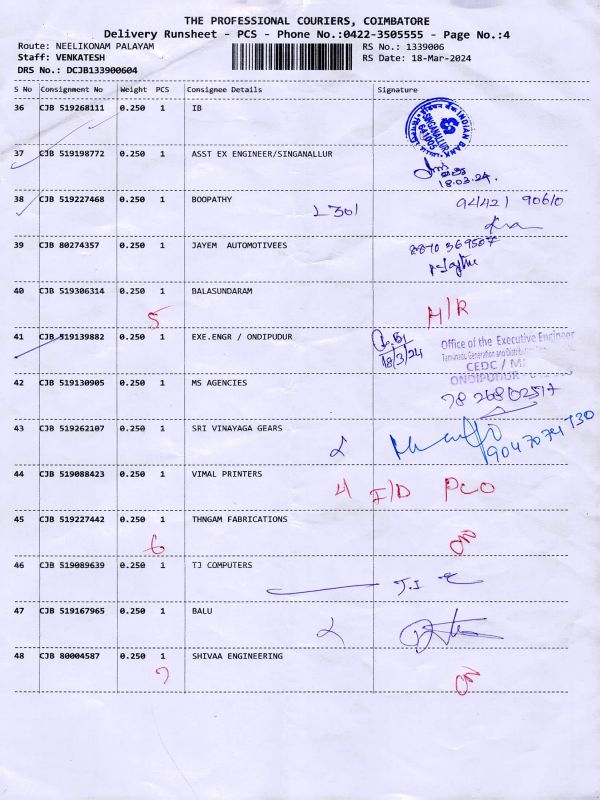 THE PROFESSIONAL COURIERS, COIMBATORE
Delivery Runsheet - PCS - Phone No.:0422-3505555 - Page No.:4
Route: NEELIKONAM PALAYAM
RS No.: 1339006
Staff: VENKATESH
RS Date: 18-Mar-2024
DRS No.: DCJB133900604
S No Consignment No Weight PCS Consignee Details Signature
36 CJB 519268111 0.250 1 IB
INDIAN BANK
SINGANALLUR
641005
37 CJB 519198772 0.250 1 ASST EX ENGINEER/SINGANALLUR
18.03.24.
38 CJB 519227468 0.250 1 BOOPATHY
94421 90610
39 CJB 80274357 0.250 1 JAYEM AUTOMOTIVEES
8870 369507
40 CJB 519306314 0.250 1 BALASUNDARAM
5 H/R
41 CJB 519139882 0.250 1 EXE.ENGR / ONDIPUDUR
18/3/24
Office of the Executive Engineer
Tamilnadu Generation and
CEDC /
ONDIPUDUR
42 CJB 519130905 0.250 1 MS AGENCIES
43 CJB 519262107 0.250 1 SRI VINAYAGA GEARS
9047074730
44 CJB 519088423 0.250 1 VIMAL PRINTERS
4 I/D PCO
45 CJB 519227442 0.250 1 THNGAM FABRICATIONS
6
46 CJB 519089639 0.250 1 TJ COMPUTERS
47 CJB 519167965 0.250 1 BALU
48 CJB 80004587 0.250 1 SHIVAA ENGINEERING
7